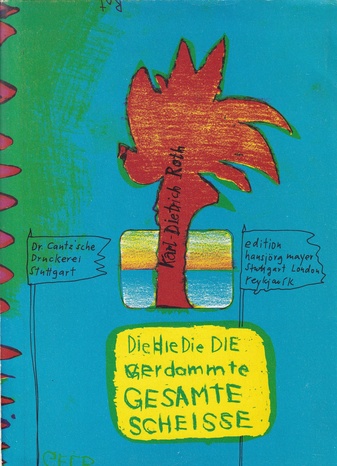 Karl-Dietrich Roth
Dr. Cantz'sche
Druckerei
Stuttgart
edition
hansjörg mayer
Stuttgart London
reykjavik
Die Die Die DIE
verdammte
GESAMTE
SCHEISSE